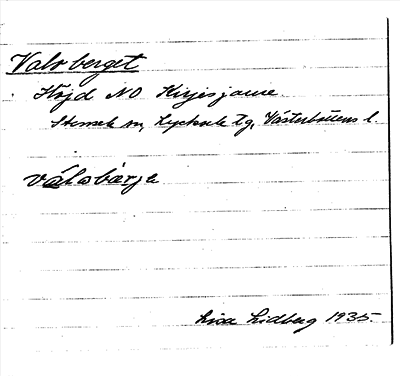 Valsberget
Höjd NO Kirjesjaure
Stensele sn, Lycksele tg, Västerbottens l.
válsbarje
Lisa Lidberg 1935.